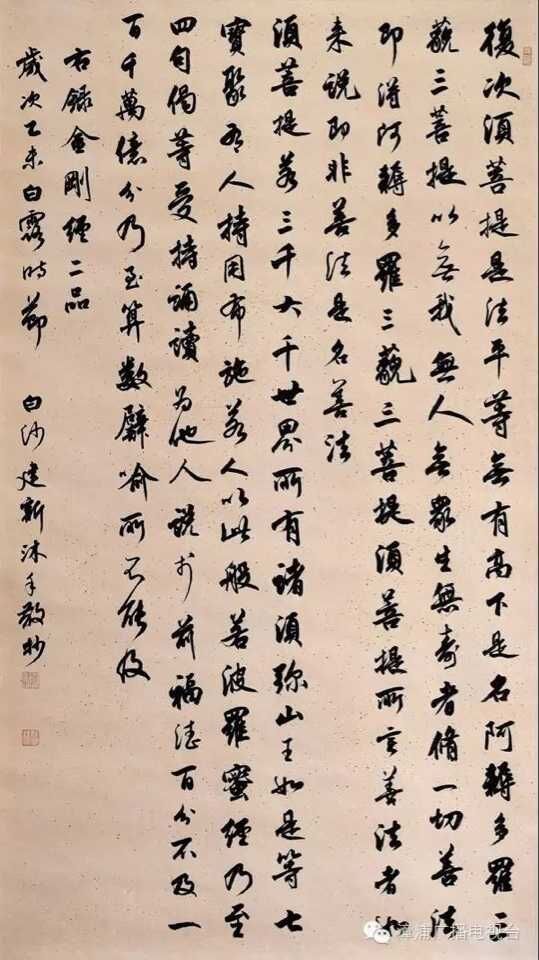 復次須菩提是法平等無有高下是名阿耨多羅三
藐三菩提以無我無人無眾生無壽者脩一切善法
即得阿耨多羅三藐三菩提須菩提所言善法者如
来說即非善法是名善法
須菩提若三千大千世界所有諸須弥山王如是等七
寶聚有人持用布施若人以此般若波羅蜜經乃至
四句偈等受持誦讀為他人說於前福德百分不及一
百千萬億分乃至算數譬喻所不能及
右錄金剛經二品
歲次乙未白露時節 白沙建新沐手敬抄
漳浦广播电视台